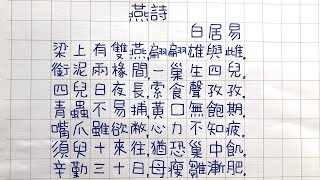 燕詩
白居易
梁上有雙燕,翩翩雄與雌,
銜泥兩椽間,一巢生四兒,
四兒日夜長,索食聲孜孜,
青蟲不易捕,黃口無飽期,
嘴爪雖欲敝,心力不知疲,
須臾十來往,猶恐巢中飢,
辛勤三十日,母瘦雛漸肥,